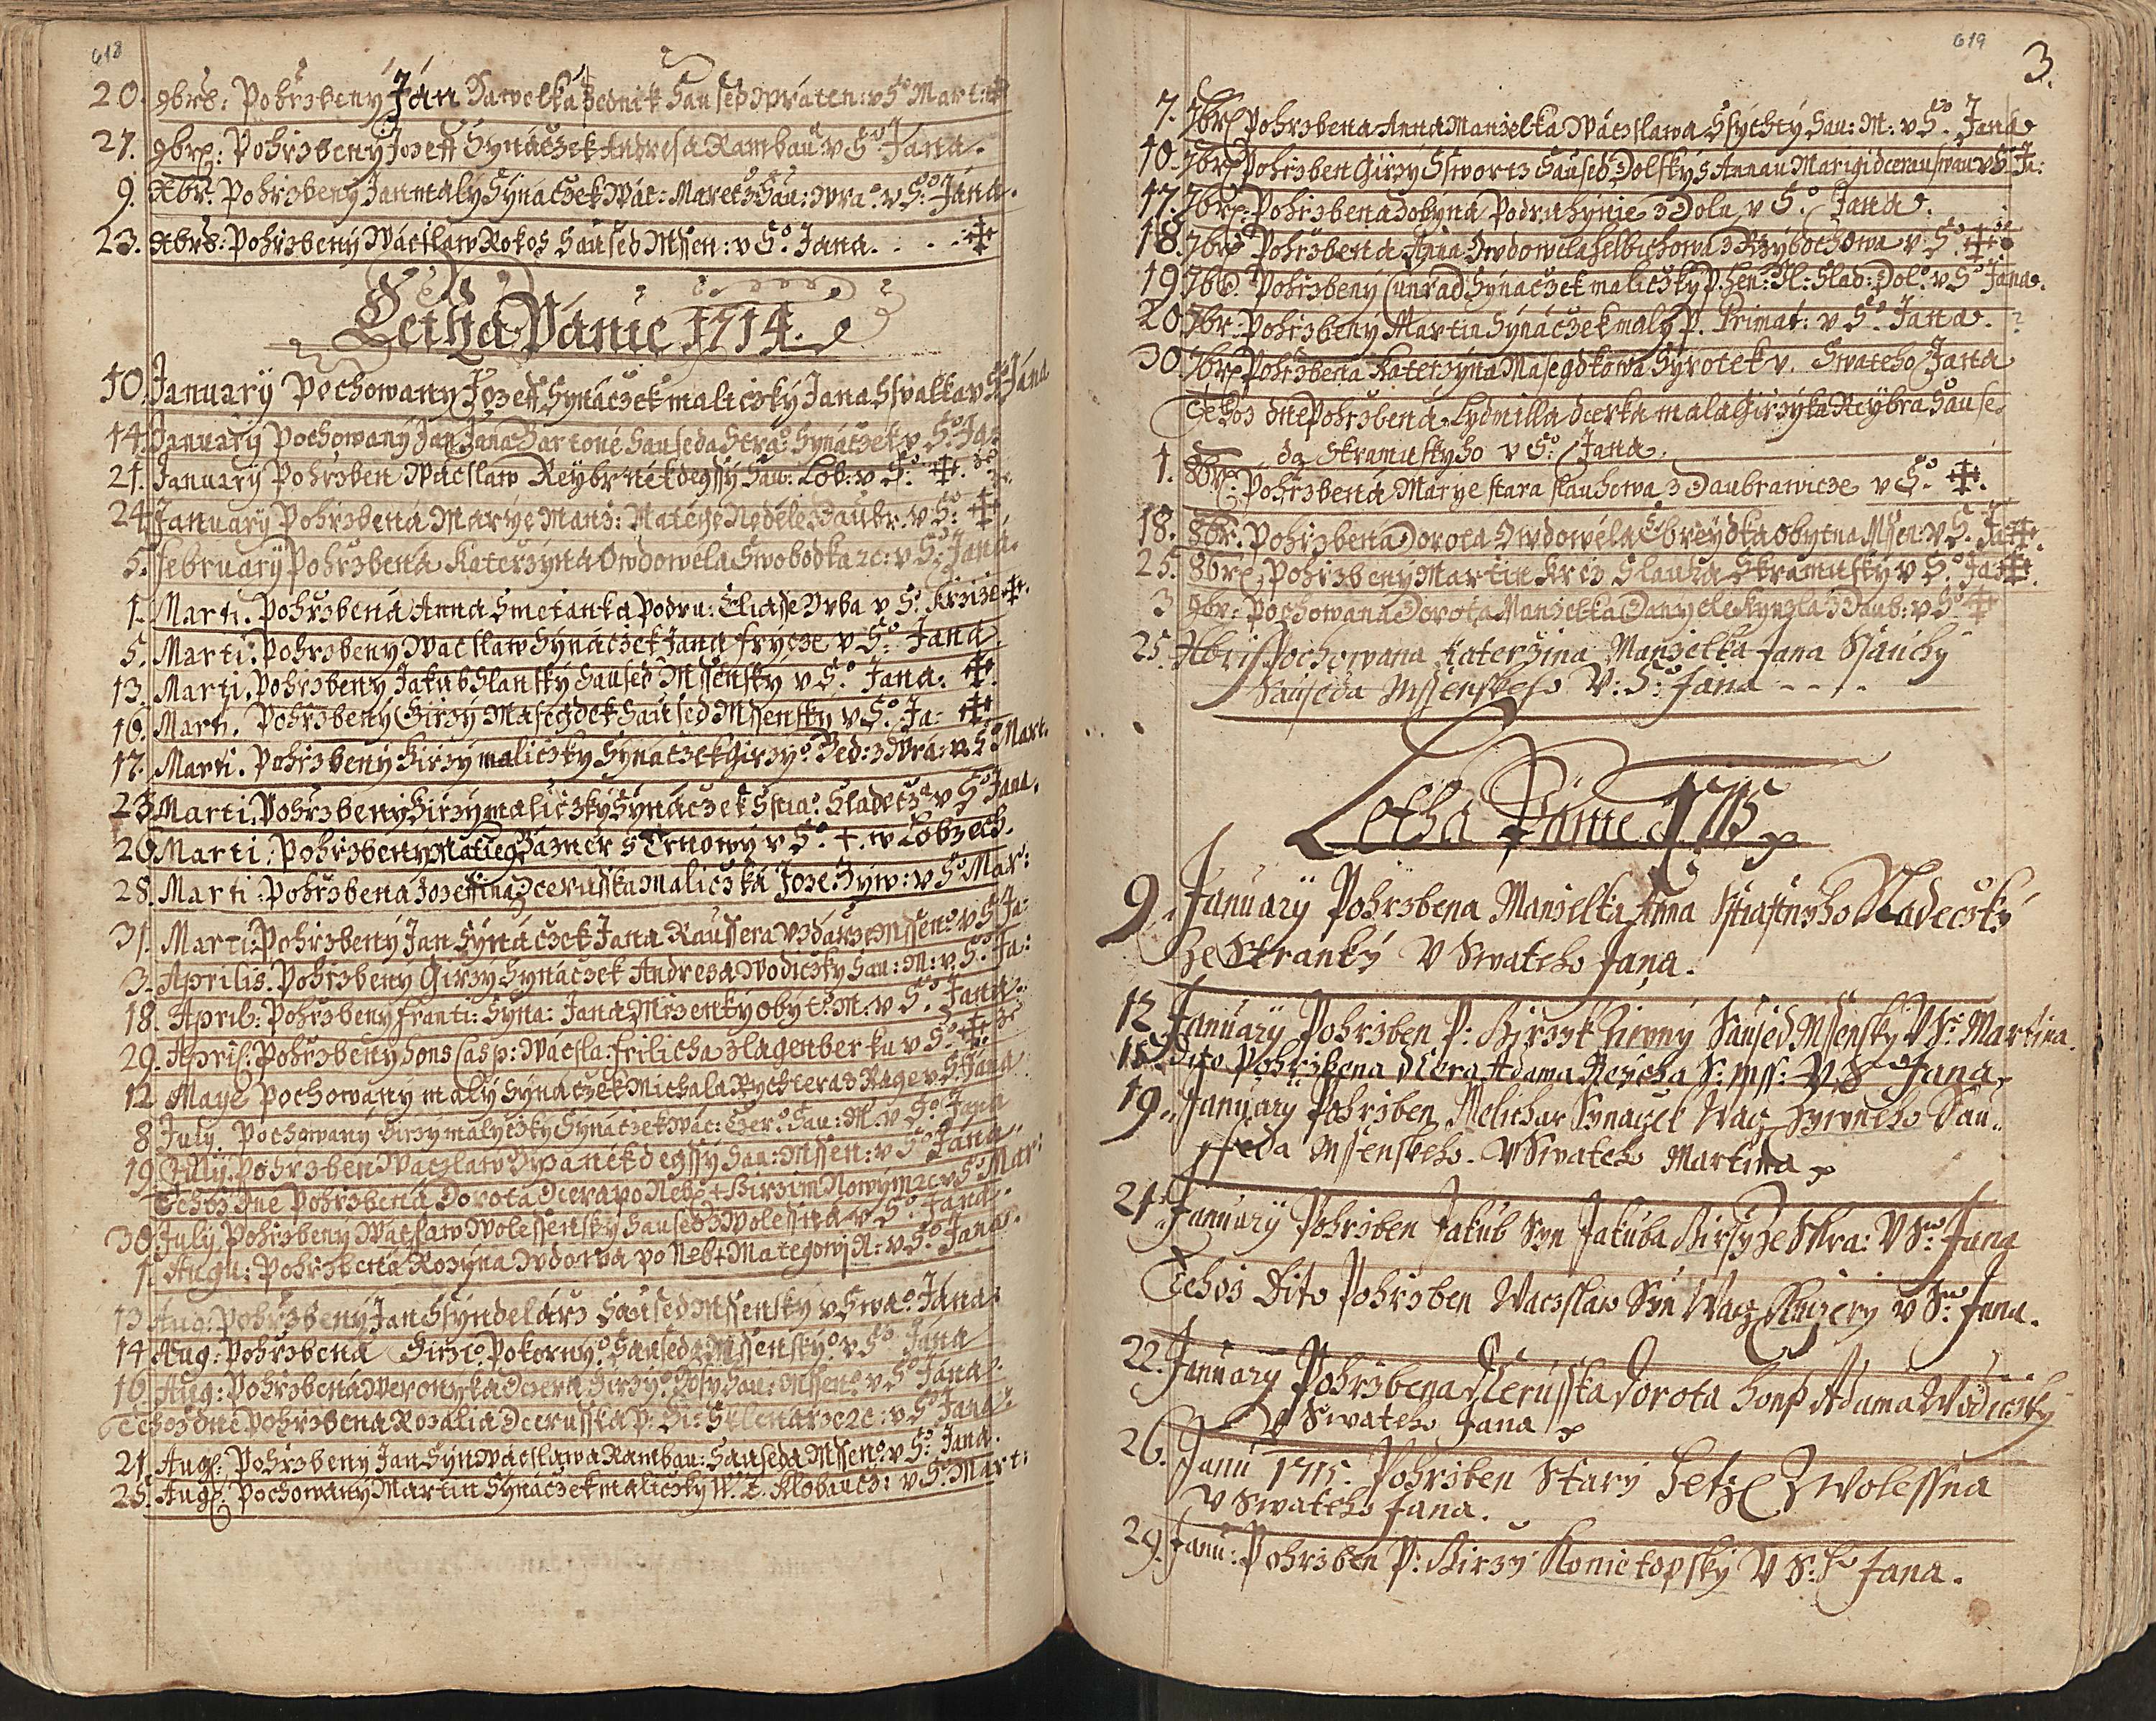 618
20. 9bris: Pohrzbeny Ján Hawelka Zednik Saused Wraten: v So Mart:
27. 9bris: Pohrzbeny Jozeff Synáczek Andresa Rambau v So Jana.
9. Xbr. Pohrzbeny Jan maly Synaczek Wác: Maretz Sau: Wrao v So: Jána.
23. Xbris: Pohrzbeny Wáclaw Rokos Saused Mssen: v So. Jana. ✠
Letha Panie 1714.
10. January Pochowany Jozeff Synáczek maliczky Jana Sspalka v So Jana
14. January Pochowany Jan Jana Bartone Sauseda Strao. Synáczek v So: Ja:
21. January Pohrzben Wáclaw Reybr nékdegssy Sau: Lob: v So. ✠
24. January Pohrzbená Marye Manz: Mategie Neděle Daubr. v So: ✠
5. February Pohrzbená Katerzyna Owdowela Swobodka 2c: v So: Jana.
1. Marti. Pohrzbená Anna Smetanka Podru: Eliasse Vrba v So. Krzize ✠.
5. Marti. Pohrzbeny Waclaw Synáczek Jana Frycze v So: Jana.
13. Marti. Pohrzbeny Jakub Slansky Saused Mssensky v So. Jana. ✠
16. Marti. Pohrzbeny Girzy Masegdek Saused Mssensky v So. Ja: ✠
17. Marti. Pohrzbeny Girzy maliczky Synáczek Girzyo. Bed: z Wra: v So Mart.
23. Marti. Pohrzbeny Girzy maliczky Synáczek Sstiao. Sladecz: v So Jana.
26. Marti. Pohrzbeny Matieg Bázner s Trnowy v So. †. w Lobzech.
28. Marti. Pohrzbena Jozeffina Dcerusska maliczka Joze. Zyw: v So Mar:
31. Marti. Pohrzbeny Jan Synáczek Jana Raussera Vzdarze Msseno. v So Ja:
3. Aprilis. Pohrzbeny Girzy Synáczek Andresa Wodiczky Sau: M: v So. Ja:
18. April: Pohrzbeny Franti: Syna: Jana Mrzenky obyt: M: v So. Jana.
29. April: Pohrzbeny Hons Casp: Wácsla: Frilicha z Lagenberku v So. ✠
12. Maye Pochowány maly Synáczek Michala Rychtera z Rage v So Jana.
8. July. Pochowany Girzy malyczky Synáczek Wác: Czero. Sau: M. v So. Jana
19. July. Pohrzben Waczlaw nekdegssy Sau: Mssen: v So Jana.
Tehoz Dne Pohrzbená Dorota Dcera po Neb: † Girzim Nowym 2c v So Mar:
30. July Pohrzbeny Wáclaw Wolessensky Saused z Wolessna v So. Jana.
1. Augu: Pohrzbená Rozyna Wdowa po Neb † Mategowi R: v So. Jana.
13. Aug: Pohrzbeny Jan Ssyndelárz Saused Mssensky v Swao. Jana.
14. Aug: Pohrzbená Girzio. Pokornyo. Sauseda Mssenskyo. v So Jana
16. Aug: Pohrzbená Weronyka Dcera Girzyo. Sau: Msseno v So Jana.
Tehoz dne Pohrzbena Rozalia Dcerusska P: Gi: Sklenárze 2c: v So Jana.
21. Aug: Pohrzbeny Jan Syn Wáclawa Rambau: Sauseda Msseno. v So: Jana.
25. Aug: Pochowany Martin Synáczek maliczky W. T. Klobaucz: v So. Mart:
619
3.
7. 7bris Pohrzbena Anna Manzelka Waczlawa Ssychty Sau: M: v So. Jana
10. 7bris Pohrzben Girzy Sswortz Saused Dolsky s Annau Marigi dcerau swau v So Ja:
17. 7bris: Pohrzbena Podruhynie z Dola v So. Jana.
18. 7bris Pohrzbená Anna Owdowela Helbichowa z Rzybochowa v So. ✠
19. 7br. Pohrzbeny Cunrad Synáczek maliczky P. Hen: Kl: Slad: Dolo. v So Jana.
20. 7br: Pohrzbeny Martin Synáczek maly P. Primat: v So. Jana.
30. 7bris Pohrzbena Katerzyna Masegdkowa Syrotek v. Swateho Jana
Tehoz dne Pohrzbená Lydmilla dcerka mala Girzyka Reybra Sause
da Skramuskyho v So: Jana.
1. 8bris: Pohrzbená Marye stara slauhowa z Daubrawicze v So. ✠.
18. 8br. Pohrzbená Dorota Owdowela Ebreydka obytna Mssen: v So. Ja ✠.
25. 8bris. Pohrzbeny Martin Krcz Slauha Skramusky v So. Ja ✠.
3. 9br: Pochowana Dorota Manzelka Danyele Kynzla z Daub: v So ✠
25. Xbris Pochowana Katerzina Manzelka Jana Ssáuchy
Sauseda Mssenskeho V: S: Jana
Letha Panie 1715
9. January Pohrzbena Manzelka Anna Sstiastnyho Sladeczky
ze Stranky V Swateho Jana.
12. January Pohrzben P: Girzik Ziwny Saused Mssensky V So: Martina.
15. Dito Pohrzbena dcera Adama Reycha S: Mss: V S Jana
19. January Pohrzben Melichar Synaczek Wacz Zywneho Sau
seda Mssenskeho. V Swateho Martina
21. January Pohrzben Jakub Syn Jakuba Girsy ze Stra: V So: Jana
Tehoz Dito Pohrzben Waczslaw Syn Wacz v So: Jana.
22. January Pohrzbena dcerusska Dorota Hons Adama Wodiczky
V Swateho Jana
26. Janu 1715. Pohrzben Stary Hetzl Z Wolessna
V Swateho Jana.
29. Janu: Pohrzben P: Girzy Konictopsky V S: Jana.